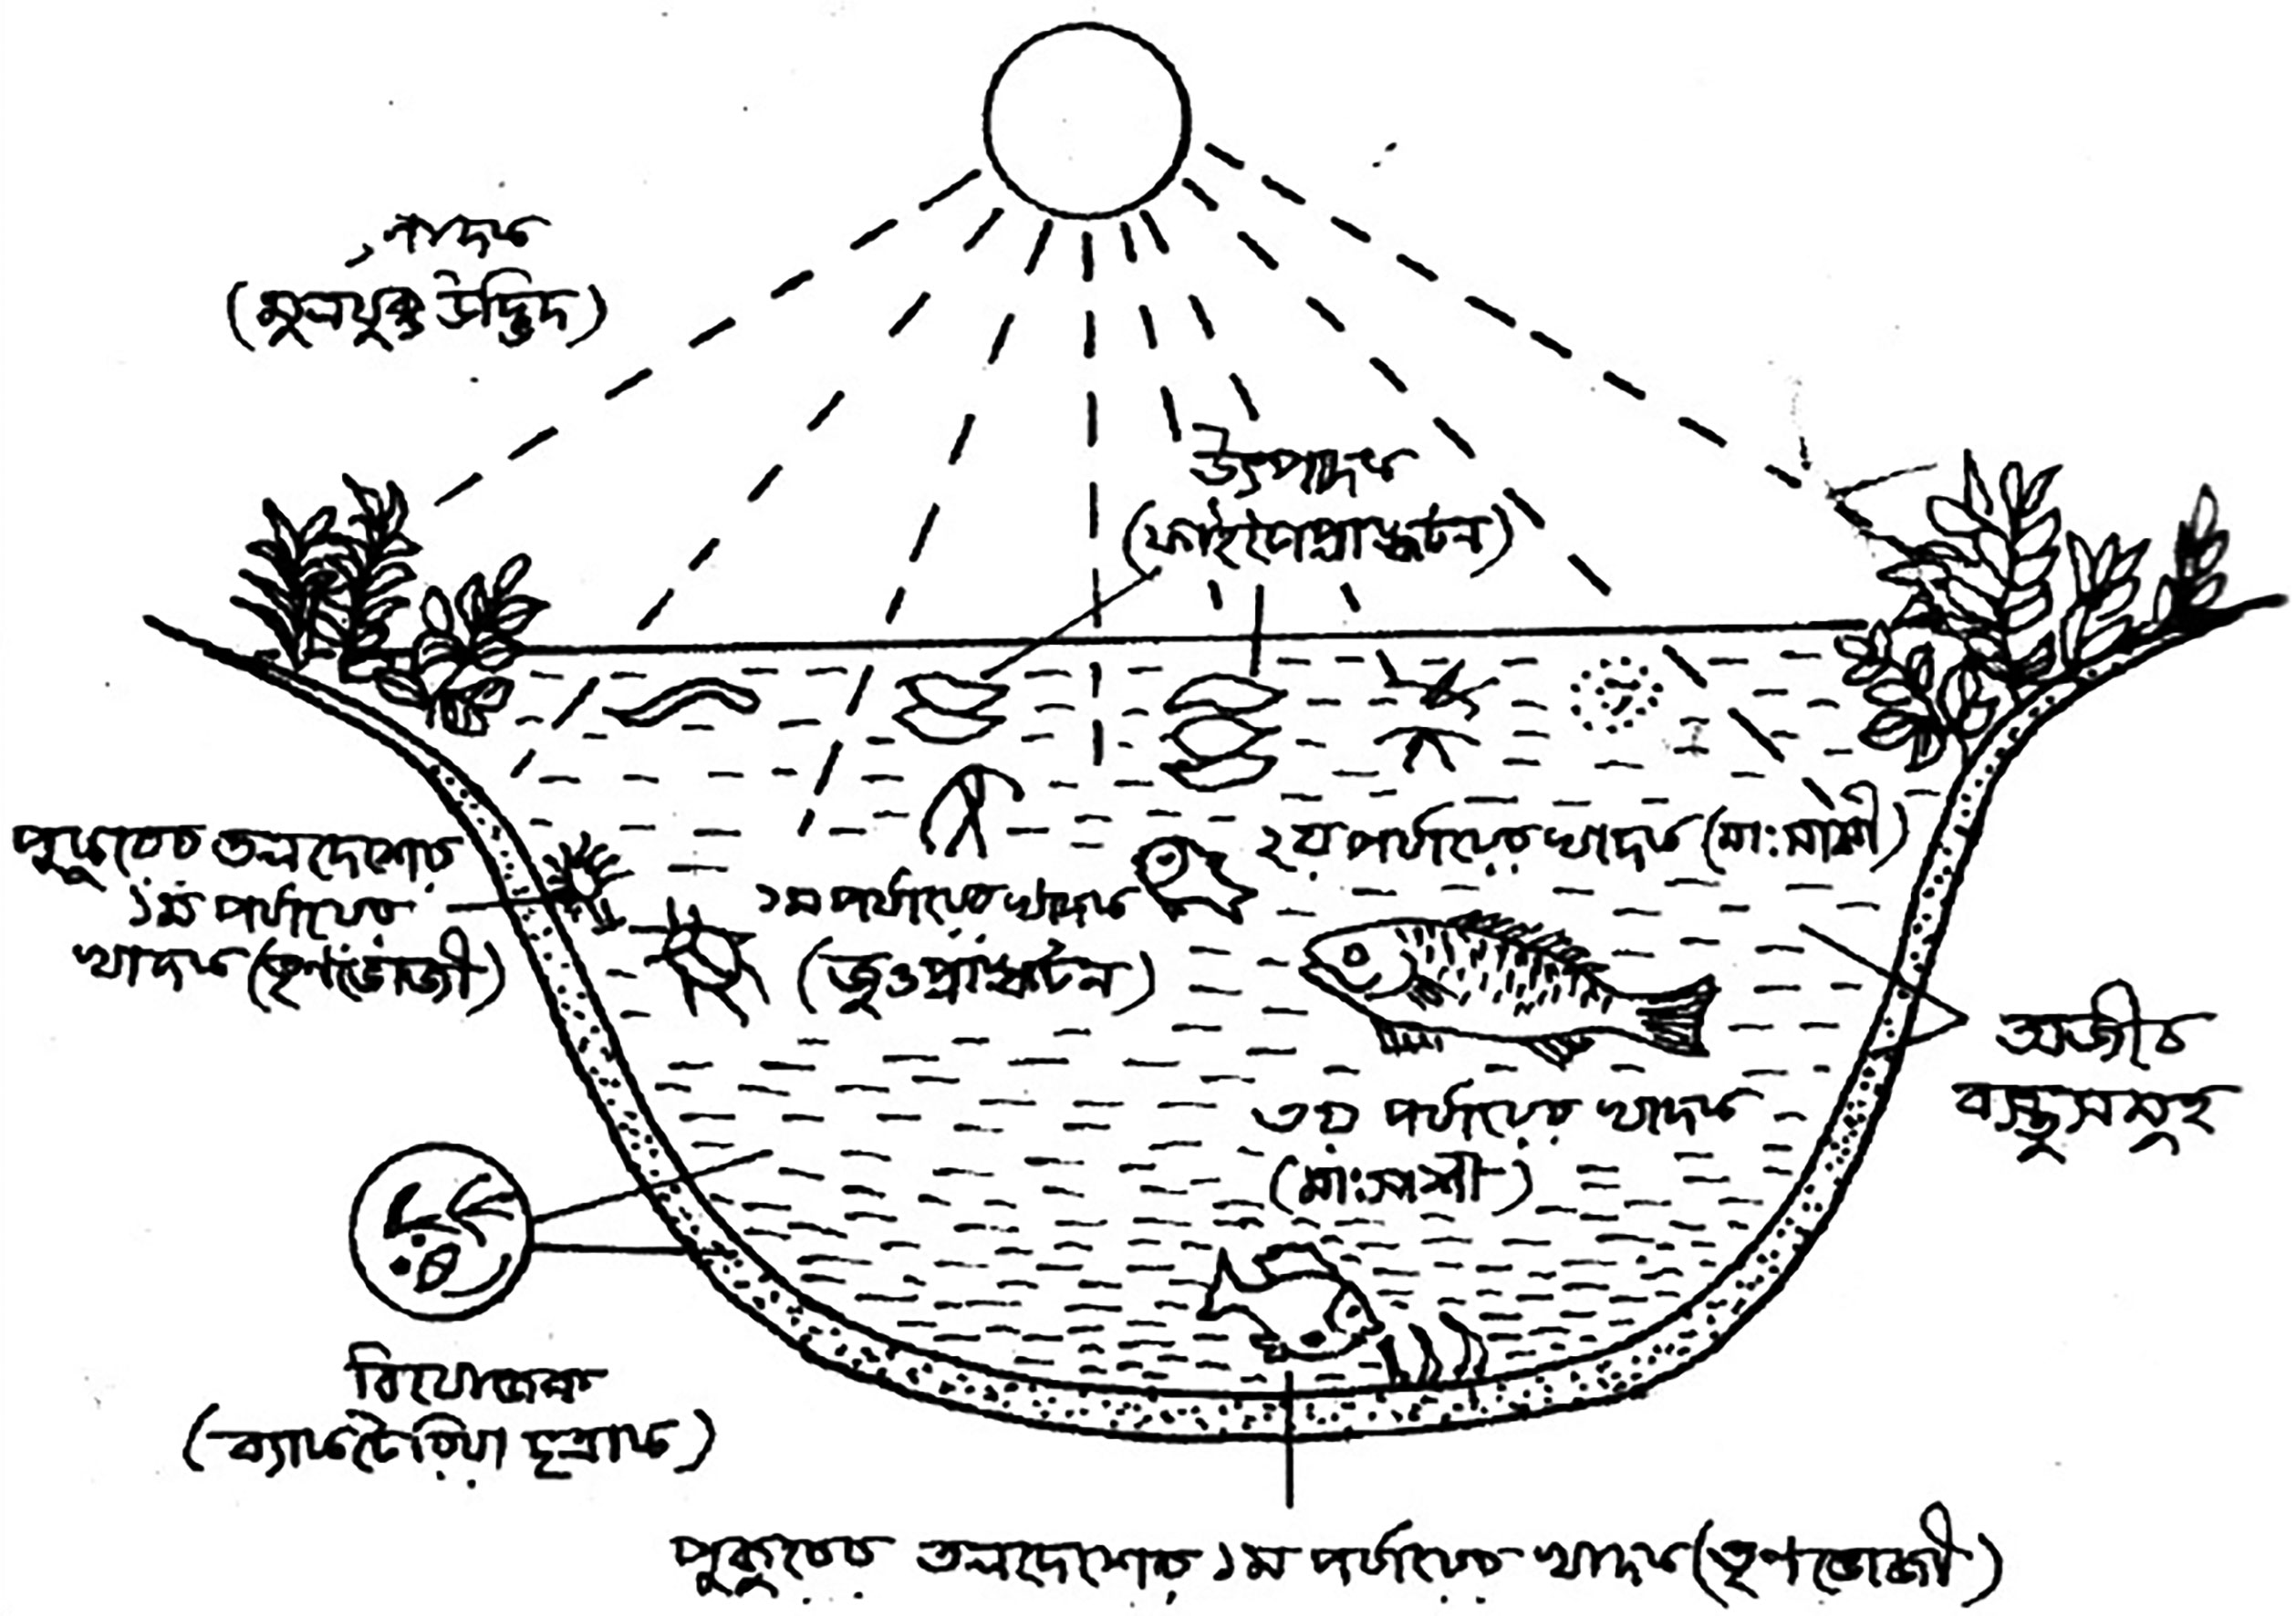 (মূলযুক্ত উদ্ভিদ)
উৎপাদক
(ফাইটোপ্লাঙ্কটন)
২য় পর্যায়ের খাদক (মাংসাশী)
পুকুরের তলদেশের
১ম পর্যায়ের
খাদক (তৃণভোজী)
১ম পর্যায়ের খাদক
(জুওপ্লাঙ্কটন)
অজীব
বস্তুসমূহ
৩য় পর্যায়ের খাদক
(মাংসাশী)
বিয়োজক
(ব্যাকটেরিয়া ছত্রাক)
পুকুরের তলদেশের ১ম পর্যায়ের খাদক (তৃণভোজী)